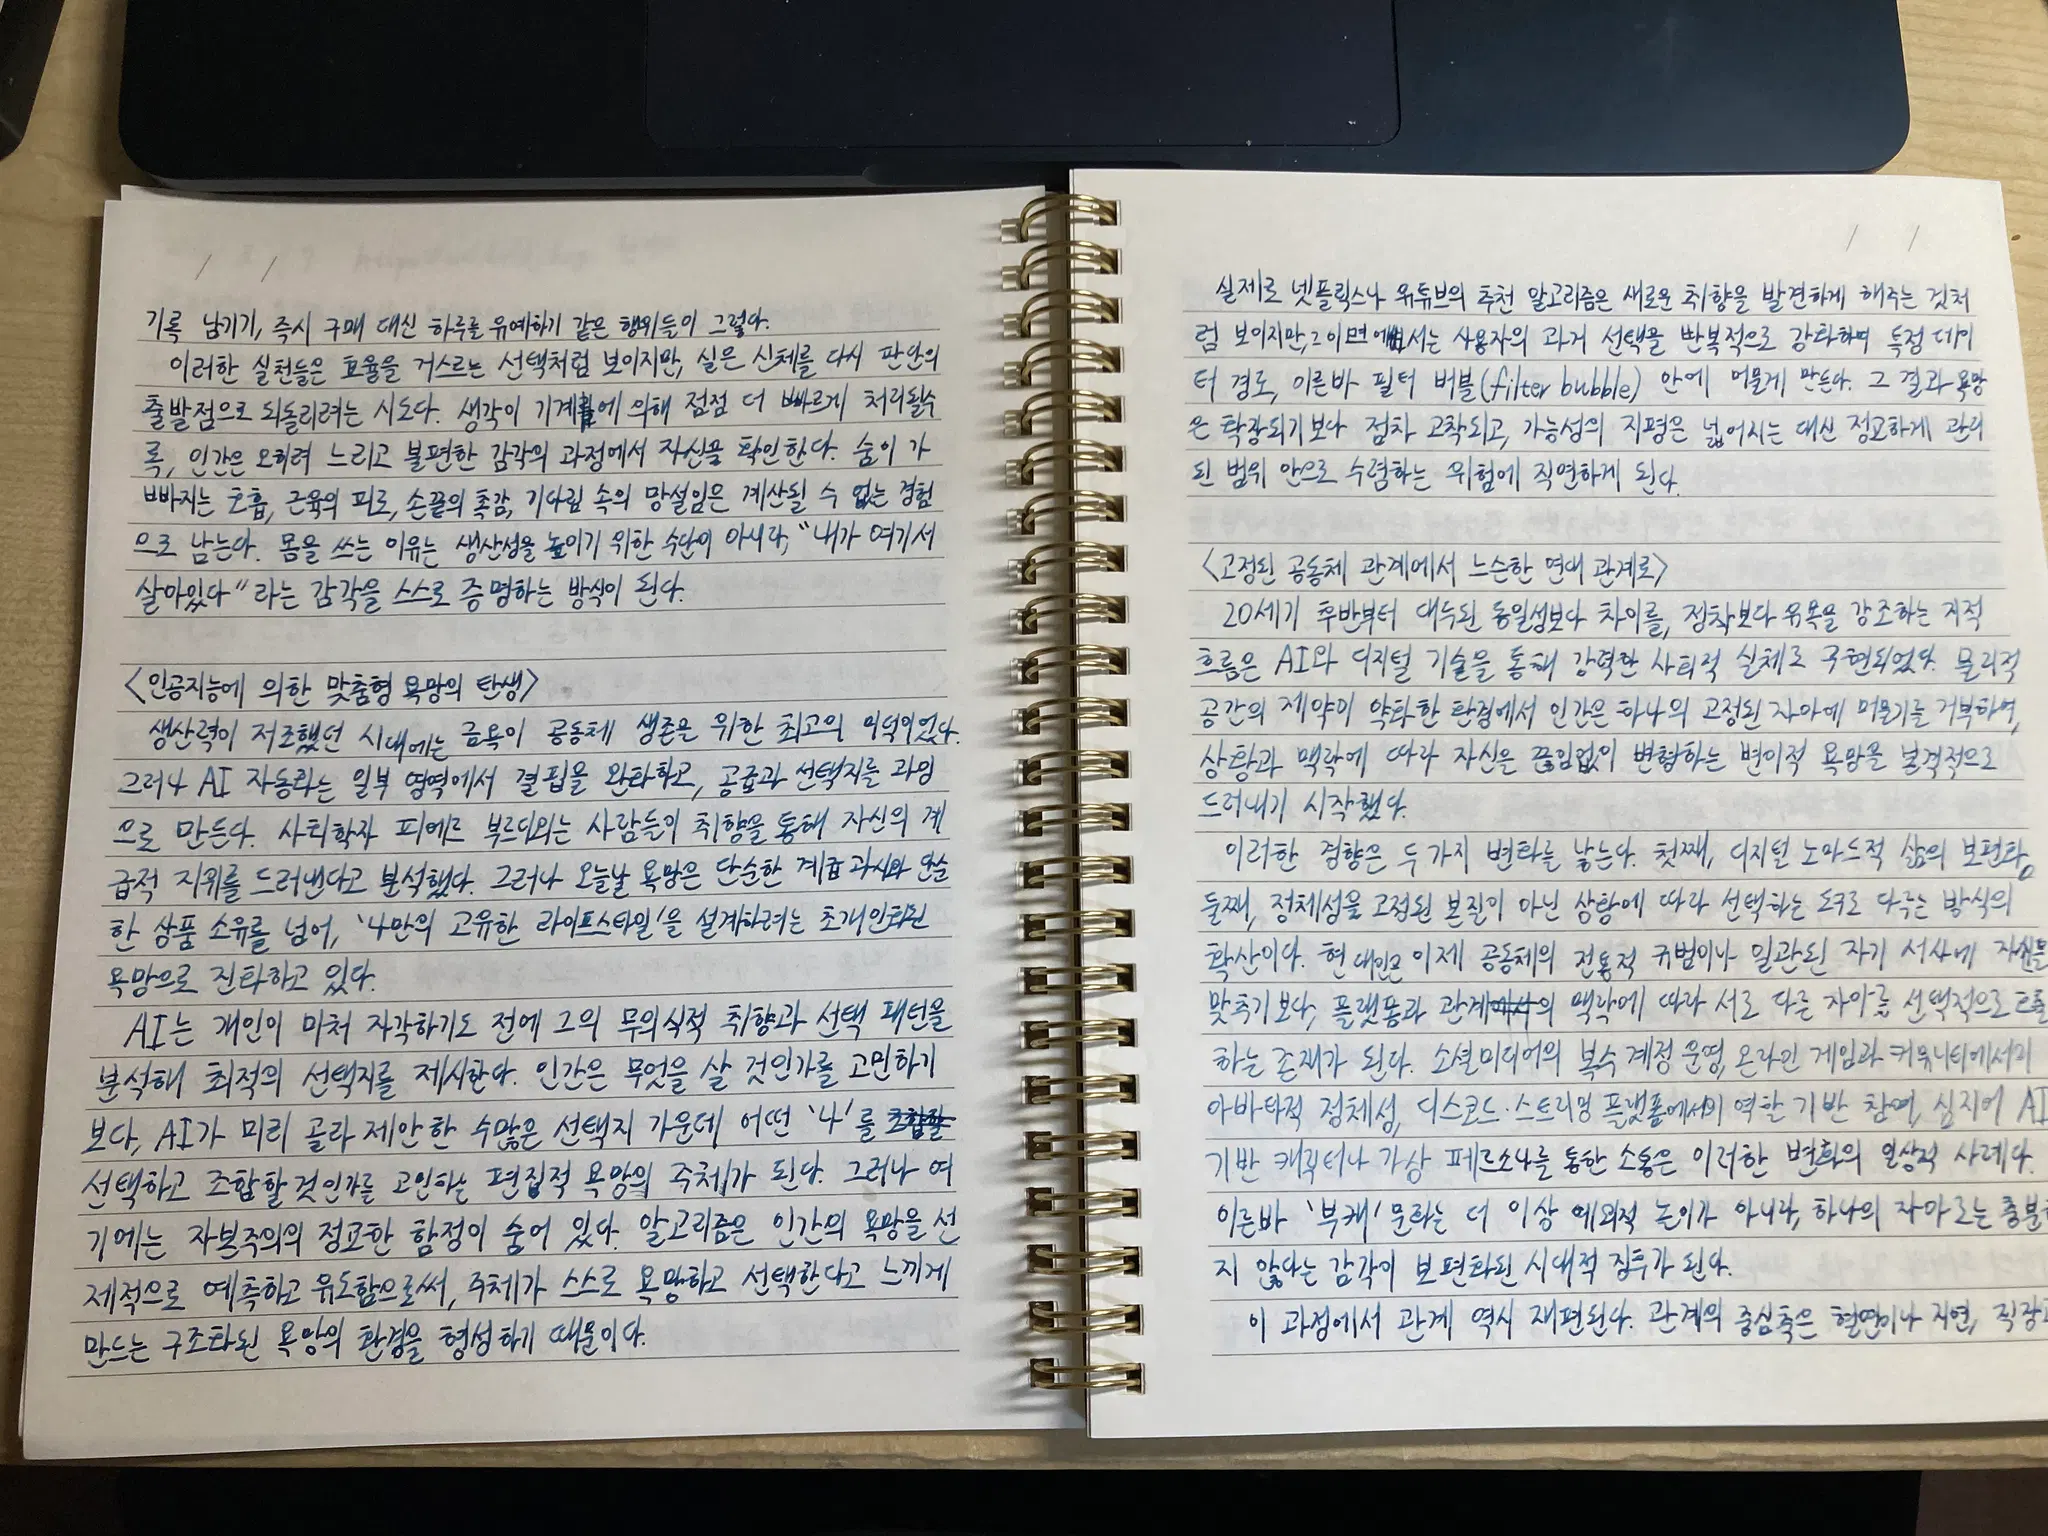 기록 남기기, 즉시 구매 대신 하루를 유예하기 같은 행위들이 그렇다.
이러한 실천들은 효율을 거스르는 선택처럼 보이지만, 실은 신체를 다시 판단의
출발점으로 되돌리려는 시도다. 생각이 기계에 의해 점점 더 빠르게 처리될수
록, 인간은 오히려 느리고 불편한 감각의 과정에서 자신을 확인한다. 숨이 가
빠지는 호흡, 근육의 피로, 손끝의 촉감, 기다림 속의 망설임은 계산될 수 없는 경험
으로 남는다. 몸을 쓰는 이유는 생산성을 높이기 위한 수단이 아니라, "내가 여기서
살아있다"라는 감각을 스스로 증명하는 방식이 된다.
<인공지능에 의한 맞춤형 욕망의 탄생>
생산력이 저조했던 시대에는 금욕이 공동체 생존은 위한 최고의 미덕이었다.
그러나 AI 자동화는 일부 영역에서 결핍을 완화하고, 공급과 선택지를 과잉
으로 만든다. 사회학자 피에르 부르디외는 사람들이 취향을 통해 자신의 계
급적 지위를 드러낸다고 분석했다. 그러나 오늘날 욕망은 단순한 계급 과시와 단순
한 상품 소유를 넘어, '나만의 고유한 라이프스타일'을 설계하려는 초개인화된
욕망으로 진화하고 있다.
AI는 개인이 미처 자각하기도 전에 그의 무의식적 취향과 선택 패턴을
분석해 최적의 선택지를 제시한다. 인간은 무엇을 살 것인가를 고민하기
보다, AI가 미리 골라 제안한 수많은 선택지 가운데 어떤 '나'를 조합할
선택하고 조합할것인가를 고민하는 편집적 욕망의 주체가 된다. 그러나 여
기에는 자본주의의 정교한 함정이 숨어 있다. 알고리즘은 인간의 욕망을 선
제적으로 예측하고 유도함으로써, 주체가 스스로 욕망하고 선택한다고 느끼게
만드는 구조화된 욕망의 환경을 형성하기 때문이다.
실제로 넷플릭스나 유튜브의 추천 알고리즘은 새로운 취향을 발견하게 해주는 것처
럼 보이지만, 그 이면에서는 사용자의 과거 선택을 반복적으로 강화하며 특정 데이
터 경로, 이른바 필터 버블(filter bubble) 안에 머물게 만든다. 그 결과 욕망
은 확장되기보다 점차 고착되고, 가능성의 지평은 넓어지는 대신 정교하게 관리
된 범위 안으로 수렴하는 위험에 직면하게 된다.
<고정된 공동체 관계에서 느슨한 연대 관계로>
20세기 후반부터 대두된 동일성보다 차이를, 정착보다 유목을 강조하는 지적
흐름은 AI와 디지털 기술을 통해 강력한 사회적 실체로 구현되었다. 물리적
공간의 제약이 약화한 환경에서 인간은 하나의 고정된 자아에 머물기를 거부하며,
상황과 맥락에 따라 자신을 끊임없이 변형하는 변이적 욕망을 본격적으로
드러내기 시작했다.
이러한 경향은 두 가지 변화를 낳는다. 첫째, 디지털 노마드적 삶의 보편화,
둘째, 정체성을 고정된 본질이 아닌 상황에 따라 선택하는 도구로 다루는 방식의
확산이다. 현대인은 이제 공동체의 전통적 규범이나 일관된 자기 서사에 자신을
맞추기보다, 플랫폼과 관계에서의 맥락에 따라 서로 다른 자아를 선택적으로
하는 존재가 된다. 소셜미디어의 복수 계정 운영, 온라인 게임과 커뮤니티에서의
아바타적 정체성, 디스코드·스트리밍 플랫폼에서의 역할 기반 참여, 심지어 AI
기반 캐릭터나 가상 페르소나를 통한 소통은 이러한 변화의 일상적 사례다.
이른바 '부캐' 문화는 더 이상 예외적 놀이가 아니라, 하나의 자아로는 충분하
지 않다는 감각이 보편화된 시대적 징후가 된다.
이 과정에서 관계 역시 재편된다. 관계의 중심축은 혈연이나 지연, 직장